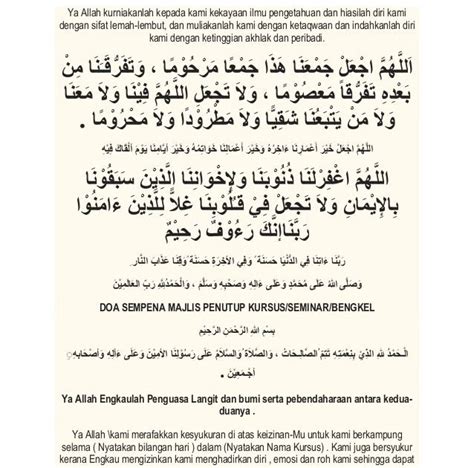 Ya Allah kurniakanlah kepada kami kekayaan ilmu pengetahuan dan hiasilah diri kami
dengan sifat lemah-lembut, dan muliakanlah kami dengan ketaqwaan dan indahkanlah diri
kami dengan ketinggian akhlak dan peribadi.
اَللَّهُمَّ اجْعَلْ جَمْعَنَا هَذَا جَمْعًا مَرْحُوْمًا ، وَتَفَرُّقَنَا مِنْ
بَعْدِهِ تَفَرُّقاً مَعْصُوْمًا ، وَلاَ تَجْعَلِ اللَّهُمَّ فِيْنَا وَلاَ مَعَنَا
وَلاَ مَنْ يَتْبَعُنَا شَقِيًّا وَلاَ مَطْرُوْدًا وَلاَ مَحْرُوْمًا .
اللَّهُمَّ اجْعَلْ خَيْرَ أَعْمَارِنَا ءَاخِرَهُ وَخَيْرَ أَعْمَالِنَا خَوَاتِمُهُ وَخَيْرَ أَيَّامِنَا يَوْمَ أَلْقَاكَ فِيْهِ
اللَّهُمَّ اغْفِرْلَنَا ذُنُوْبَنَا وَلإِخْوَانِنَا الَّذِيْنَ سَبَقُوْنَا
بِالإِيْمَانِ وَلاَ تَجْعَلْ فِيْ قُلُوْبِنَا غِلاًّ لِلَّذِيْنَ ءَامَنُوْا
رَبَّنَاإِنَّكَ رَءُوْفٌ رَحِيْمٌ
رَبَّنَا ءَاتِنَا فِي الدُّنْيَا حَسَنَةً وَفِي الآخِرَةِ حَسَنَةً وَقِنَا عَذَابَ النَّارِ
وَصَلَّى اللهُ عَلَى سَيِّدِنَا مُحَمَّدٍ وَعَلَى ءَالِهِ وَصَحْبِهِ وَسَلَّمَ ، وَالْحَمْدُلِلَّهِ رَبِّ الْعَالَمِيْنَ
DOA SEMPENA MAJLIS PENUTUP KURSUS/SEMINAR/BENGKEL
بِسْمِ اللهِ الرَّحْمَنِ الرَّحِيْمِ
الْحَمْدُ لِلَّهِ الَّذِيْ بِنِعْمَتِهِ تَتِمُّ الصَّالِحَاتُ ، وَالصَّلاَةُ وَالسَّلاَمُ عَلَى رَسُوْلِنَا الأَمِيْنِ وَعَلَى ءَالِهِ وَأَصْحَابِهِ
أَجْمَعِيْنَ .
Ya Allah Engkaulah Penguasa Langit dan bumi serta pebendaharaan antara kedua-
duanya .
Ya Allah \kami merafakkan kesyukuran di atas keizinan-Mu untuk kami berkampung
selama ( Nyatakan bilangan hari ) dalam (Nyatakan Nama Kursus) . Kami juga bersyukur
kerana Engkau mengizinkan kami menghadirkan diri , emosi dan roh kami sehingga dapat